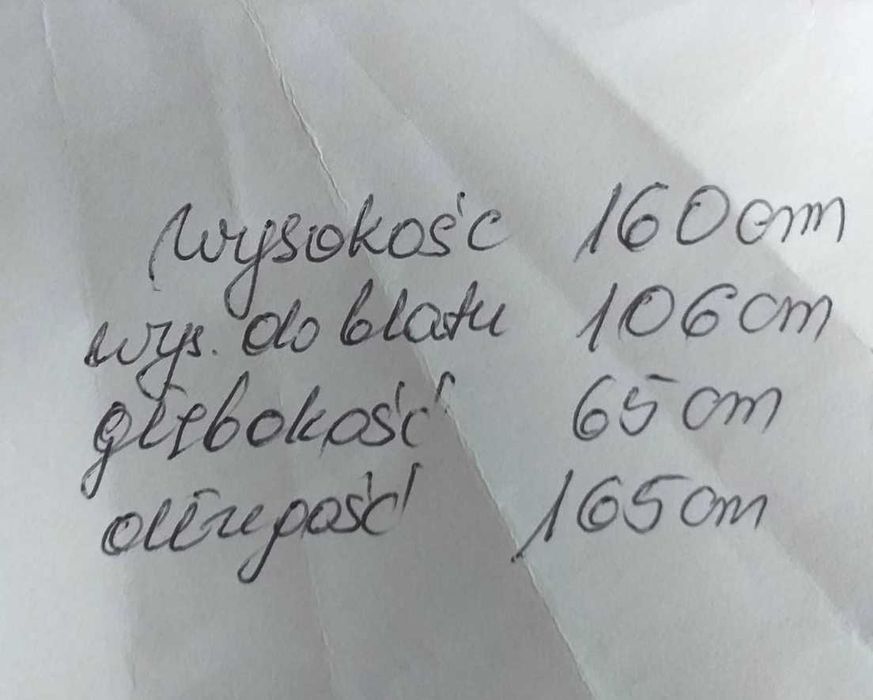 wysokość 160cm
wys. do blatu 106cm
głębokość 65cm
długość 165cm